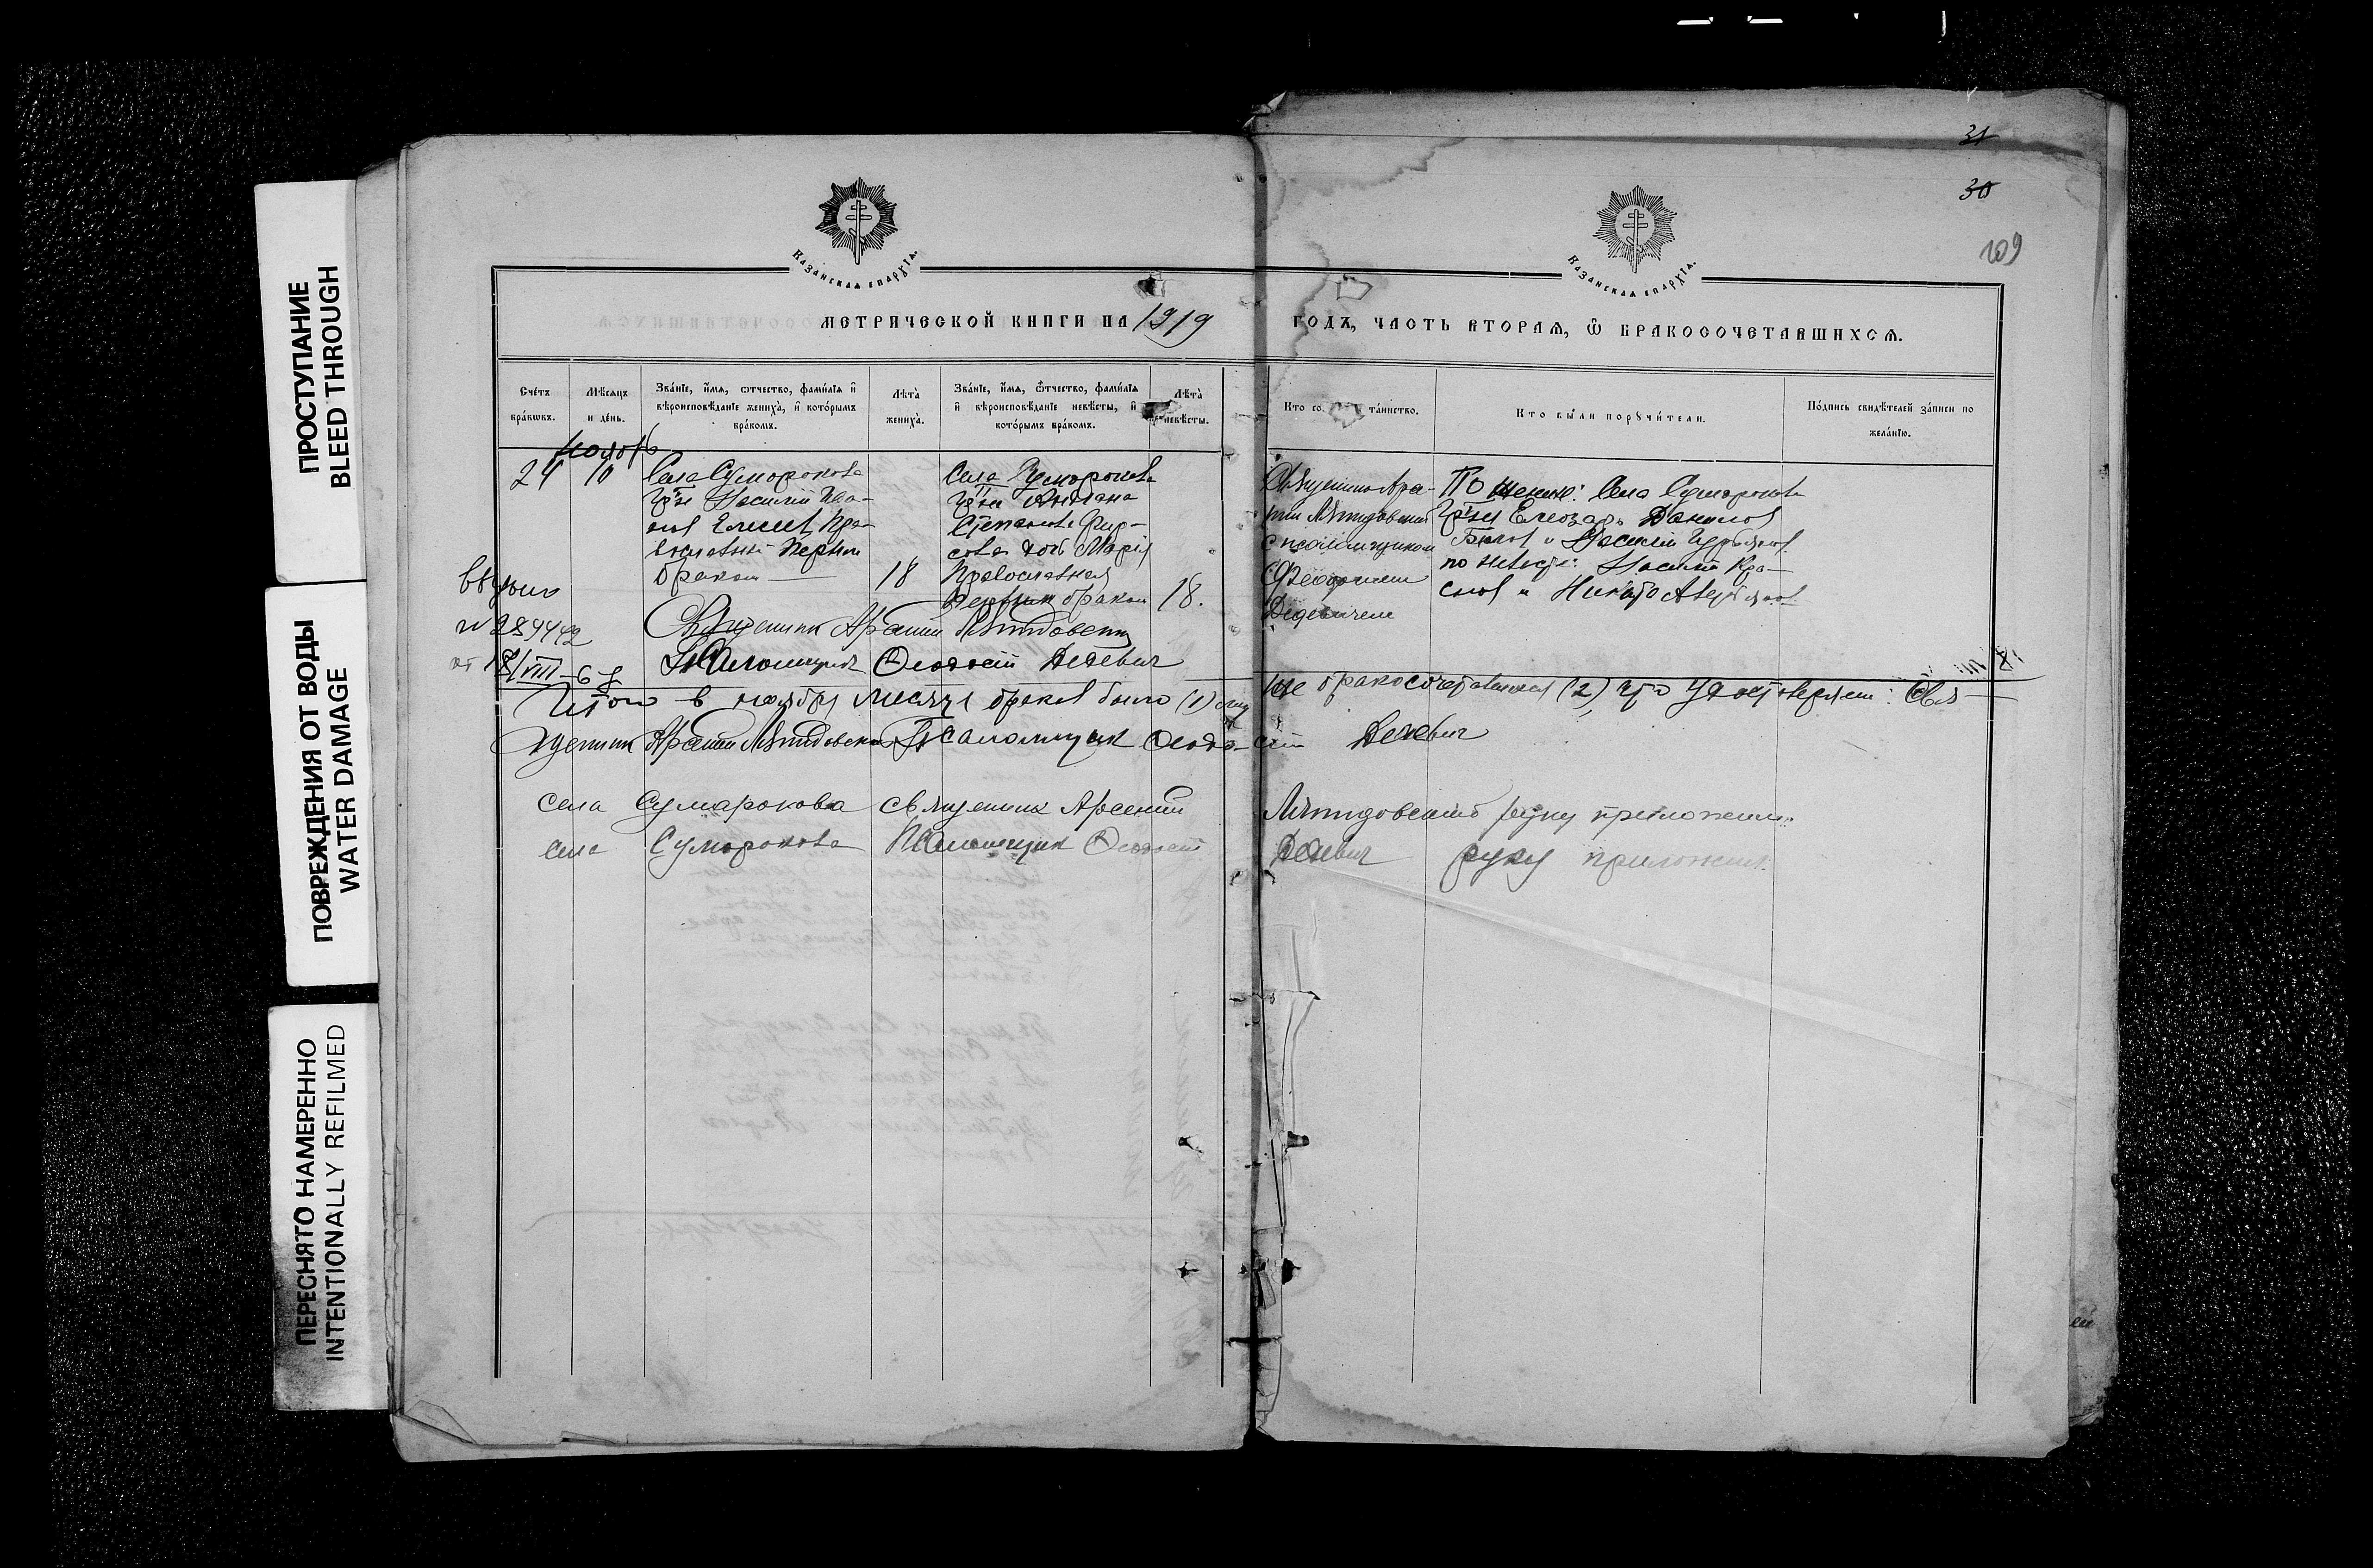 ПРОСТУПАНИЕ
BLEED THROUGH
ПОВРЕЖДЕНИЯ ОТ ВОДЫ
WATER DAMAGE
ПЕРЕСНЯТО НАМЕРЕННО
INTENTIONALLY REFILMED
31
30
109
Казанская епархїѧ.
Казанская епархїѧ.
МЕТРИЧЕСКОЙ КНИГИ НА 1919
ГОДЪ, ЧАСТЬ ВТОРАѦ, Ѡ БРАКОСОЧЕТАВШИХСѦ.
Счетъ бракωвъ.
Мѣсѧцъ и день.
Званїе, имѧ, ѡтчество, фамилїѧ и вѣроисповѣданїе жениха, и которымъ бракомъ.
Лѣта жениха.
Званїе, имѧ, ѡтчество, фамилїѧ и вѣроисповѣданїе невѣсты, и которымъ бракомъ.
Лѣта невѣсты.
Кто со таинство.
Кто были порꙋчители.
Подпись свидѣтелей записи по желанїю.
Ноябрь
24 10 Села Суморокова
гр-н Василий Ива-
нов Елисеев, Пра-
вославный Первым
браком 18
Села Суморокова
Степанова Фир-
сова дочь Мария
Православная
Первым браком 18.
Священник Арсе-
ний Лепидовский
с псаломщиком
Дедевичем
По жениху: Села Суморокова
гр-не Елеозар Данилов
Белов и Василий
по невесте: Василий Кра-
снов и Никита
Выдано
№ 284442
от 18/VIII-6
Священник Арсений Лепидовский
Псаломщик Феодосий Дедевич
Итого в ноябре месяце браков было (1) один
же бракосочетавшихся (2) что удостоверяем: Свя-
щенник Арсений Лепидовский Псаломщик Феодо-
сий Дедевич
Села Суморокова священник Арсений Лепидовский руку приложил.
Села Суморокова Псаломщик Феодосий Дедевич руку приложил.